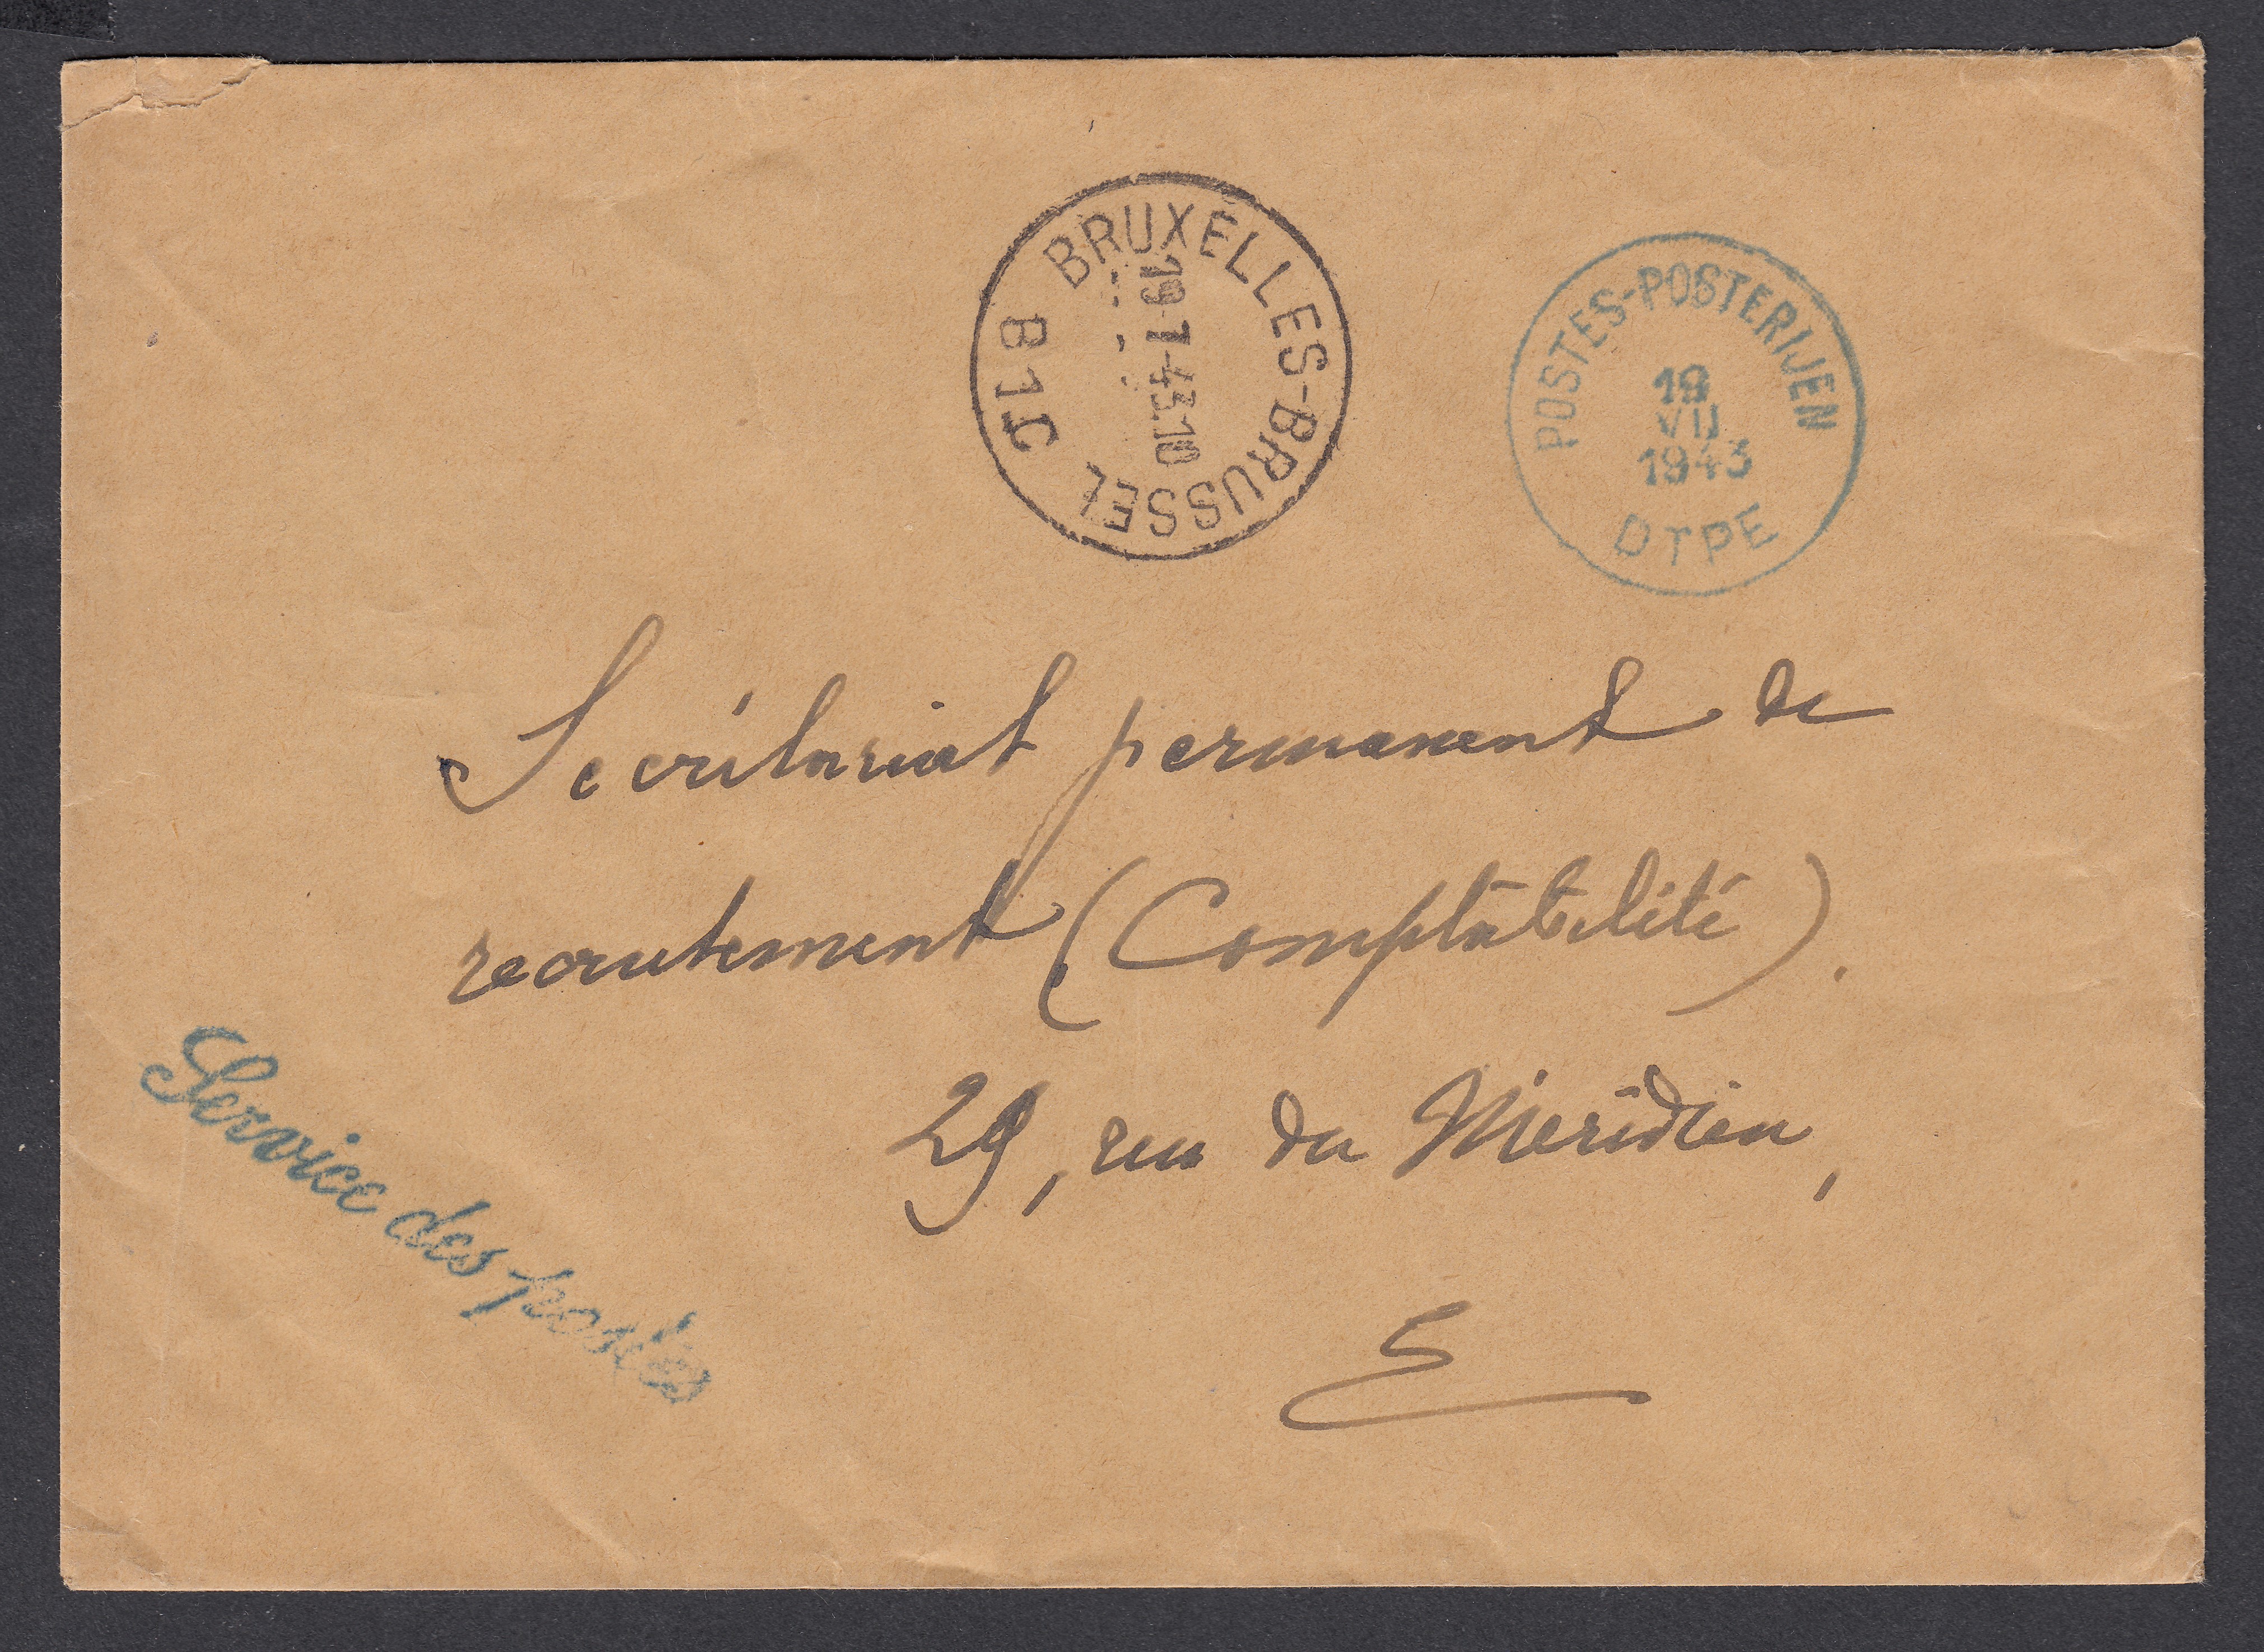 BRUXELLES-BRUSSEL
19-7-43.10
B1C
POSTES-POSTERIJEN
19
VII
1943
DTPE
Secrétariat permanent de
recrutement (Comptabilité).
29, rue du Méridien,
Service des postes